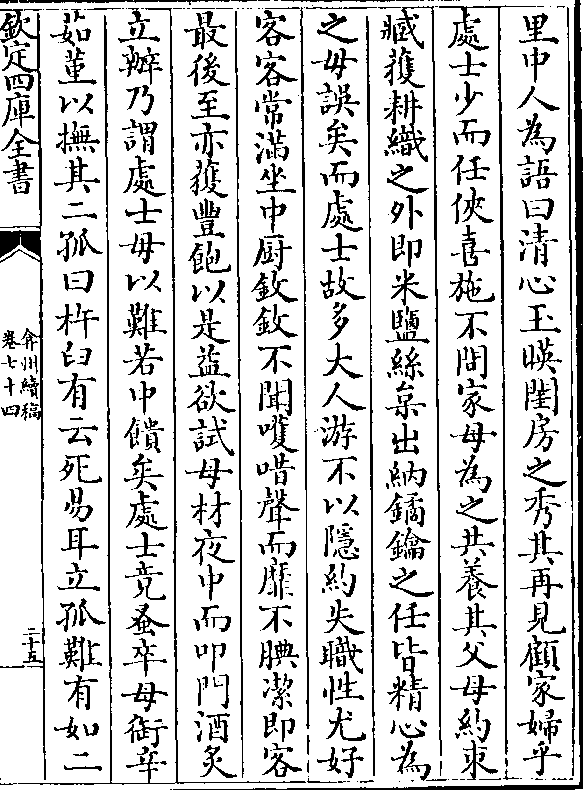 里中人為語曰清心玉暎閨房之秀其再見顧家婦乎
處士少而任俠喜施不問家母為之共養其父母約束
臧獲耕織之外即米鹽絲枲出納鐍鑰之任皆精心為
之毋誤矣而處士故多大人游不以隱約失職性尤好
客客常滿坐中厨敛敛不聞嚄唶聲而靡不腆潔即客
最後至亦獲豐飽以是益欲試母材夜中而叩門酒炙
立辦乃謂處士母以難若中饋矣處士竟蚤卒母銜辛
茹堇以撫其二孤曰杵臼有云死易耳立孤難有如二
欽定四庫全書
弇州續稿
卷七十四
二十五